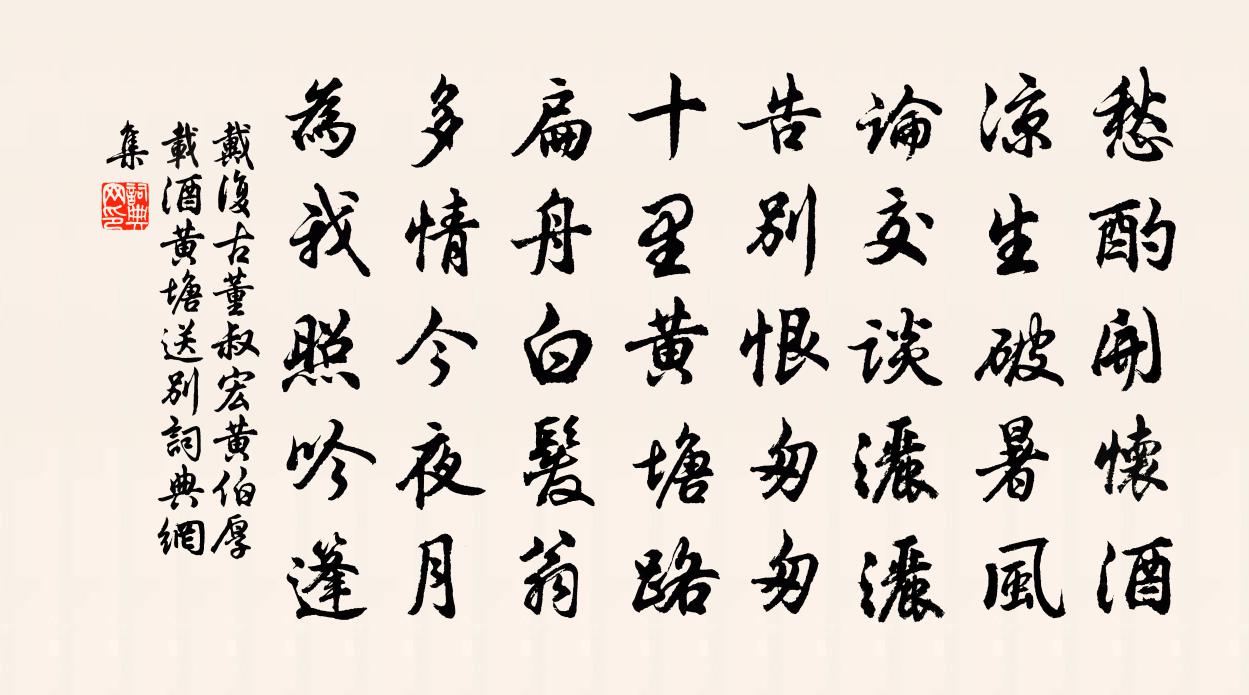 愁酌開懷酒
涼生破暑風
論交談灑灑
告別恨匆匆
十里黃塘路
扁舟白髮翁
多情今夜月
為我照吟篷
戴復古董叔宏黃伯厚
載酒黃塘送別詞典網
集
詞典
网印